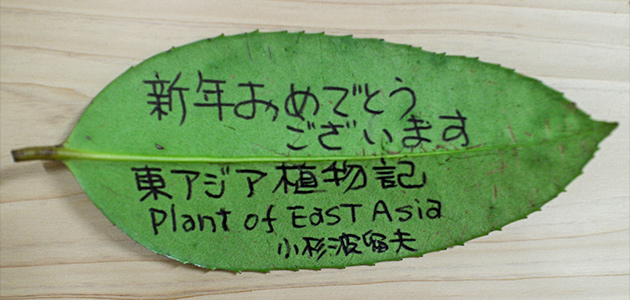 新年おめでとう
ございます
東アジア植物記
Plant of EasT Asia
小杉波留夫